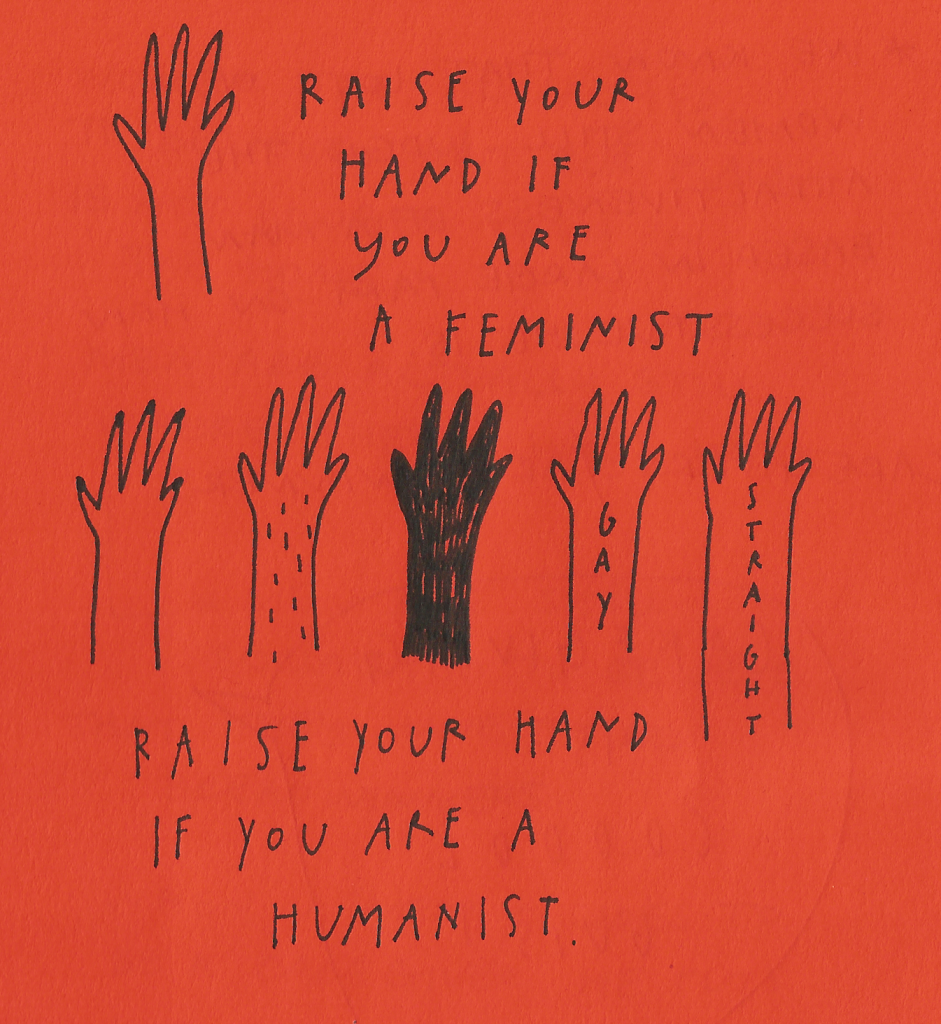 RAISE YOUR
HAND IF
YOU ARE
A FEMINIST
GAY
STRAIGHT
RAISE YOUR HAND
IF YOU ARE A
HUMANIST.